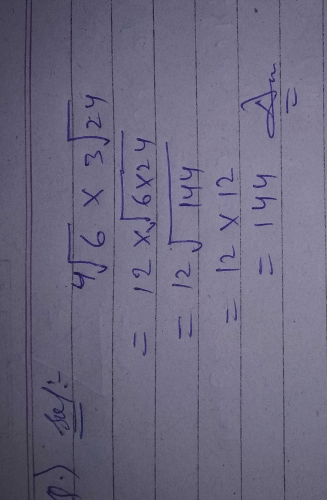 Sol:-
4√6 × 3√24
= 12 × √6×24
= 12√144
= 12 × 12
= 144 Ans